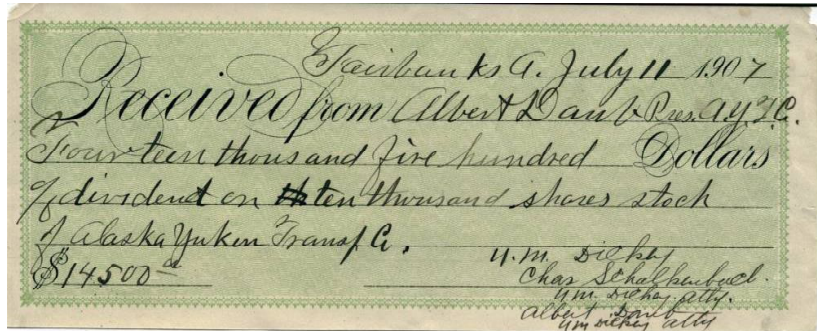 Fairbanks A. July 11 1907
Received from Albert Daub Pres. A.Y.T.C.
Fourteen thousand five hundred Dollars
of dividend on ten thousand shares stock
of Alaska Yukon Transp. Co.
$14500
U.M. Dickey
Chas
U.M. Dickey atty.
Albert Daub
U M Dickey atty